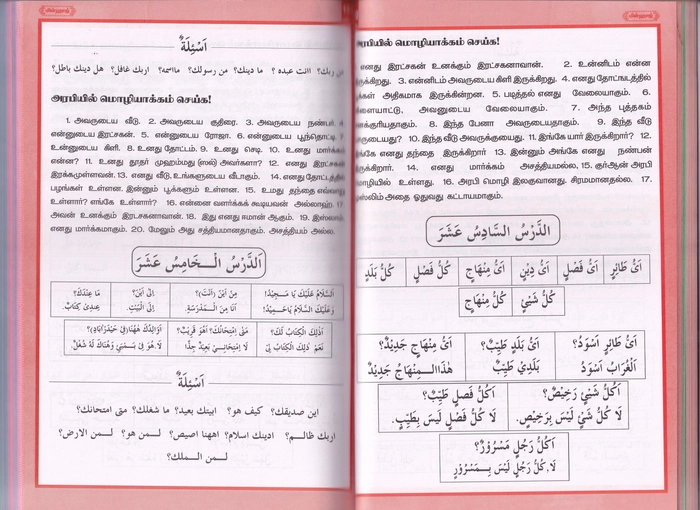 اَسْئِلَةٌ
ربك؟ اانت عبده ؟ ما دينك؟ من رسولك؟ مااسمه؟ اربك غافل؟ هل دينك باطل؟
அரபியில் மொழியாக்கம் செய்க!
1. அவருடைய வீடு. 2. அவருடைய குதிரை. 3. அவருடைய நண்பர். 4.
என்னுடைய இரட்சகன். 5. என்னுடைய ரோஜா. 6. என்னுடைய பூந்தொட்டி. 7.
உன்னுடைய கிளி. 8. உனது தோட்டம். 9. உனது செடி. 10. உனது மார்க்கம்
என்ன? 11. உனது தூதர் முஹம்மது (ஸல்) அவர்களா? 12. எனது இரட்சகன்
இரக்கமுள்ளவன். 13. எனது வீடு, உங்களுடைய வீடாகும். 14. எனது தோட்டத்தில்
பழங்கள் உள்ளன. இன்னும் பூக்களும் உள்ளன. 15. உமது தந்தை எவ்வாறு
உள்ளார்? எங்கே உள்ளார்? 16. என்னை வளர்க்கக் கூடியவன் அல்லாஹ். 17.
அவன் உனக்கும் இரட்சகனாவான். 18. இது எனது ஈமான் ஆகும். 19. இஸ்லாம்
எனது மார்க்கமாகும். 20. மேலும் அது சத்தியமானதாகும். அசத்தியம் அல்ல.
اَلدَّرْسُ الْـخَامِسُ عَشَرَ
اَلسَّلَامُ عَلَيْكَ يَا مَـجِيْدُ! مِنْ اَيْنَ (اَنْتَ)؟ اِلٰى اَيْنَ؟ مَا عِنْدَكَ؟
وَعَلَيْكَ السَّلَامُ يَاحَمِيْدُ! اَنَا مِنَ الْـمَدْرَسَةِ. اِلَى الْبَيْتِ. عِنْدِىْ كِتَابٌ.
اَذٰلِكَ الْكِتَابُ لَكَ؟ مَتٰى اِمْتِحَانُكَ؟ اَهُوَ قَرِيْبٌ؟ اَوَالِدُكَ هٰهُنَا(فِىْ حَيْدَرْاٰبَادَ)؟
نَعَمْ ذٰلِكَ الْكِتَابُ لِىْ لَا اِمْتِحَانِىْ بَعِيْدٌ جِدًّا! لَا هُوَ فِىْ بَـمْبَئِى وَهُنَاكَ لَهُ شُغْلٌ.
اَسْئِلَةٌ
اين صديقك؟ كيف هو؟ ابيتك بعيد؟ ما شغلك؟ متى امتحانك؟
اربك ظالـم؟ ادينك اسلام؟ اههنا اصيص؟ لـمن هو؟ لـمن الارض؟
لـمن الـملك؟
அரபியில் மொழியாக்கம் செய்க!
எனது இரட்சகன் உனக்கும் இரட்சகனாவான். 2. உன்னிடம் என்ன
இருக்கிறது. 3. என்னிடம் அவருடைய கிளி இருக்கிறது. 4. எனது தோட்டத்தில்
அதிகமாக இருக்கின்றன. 5. படித்தல் எனது வேலையாகும். 6.
விளையாட்டு, அவனுடைய வேலையாகும். 7. அந்த புத்தகம்
எனக்குரியதாகும். 8. இந்த பேனா அவருடையதாகும். 9. இந்த வீடு
10. இந்த வீடு அவருக்குரியது. 11. இங்கே யார் இருக்கிறார்? 12.
இங்கே எனது தந்தை இருக்கிறார் 13. இன்னும் அங்கே எனது நண்பன்
இருக்கிறார். 14. எனது மார்க்கம் அசத்தியமல்ல, 15. குர்ஆன் அரபி
மொழியில் உள்ளது. 16. அரபி மொழி இலகுவானது. சிரமமானதல்ல. 17.
முஸ்லிம் அதை ஓதுவது கட்டாயமாகும்.
اَلدَّرْسُ السَّادِسُ عَشَرَ
اَىُّ طَائِرٍ اَىُّ فَصْلٍ اَىُّ دِيْنٍ اَىُّ مِنْهَاجٍ كُلُّ فَصْلٍ كُلُّ بَلَدٍ
كُلُّ شَىْئٍ كُلُّ مِنْهَاجٍ
اَىُّ طَائِرٍ اَسْوَدُ؟ اَىُّ بَلَدٍ طَيِّبٌ؟ اَىُّ مِنْهَاجٍ جَدِيْدٌ؟
اَلْغُرَابُ اَسْوَدُ بَلَدِيْ طَيِّبٌ هٰذَاالـمِنْهَاجُ جَدِيْدٌ
اَكُلُّ شَىْئٍ رَخِيْصٌ؟ اَكُلُّ فَصْلٍ طَيِّبٌ؟
لَا كُلُّ شَىْئٍ لَيْسَ بِرَخِيْصٍ. لَا كُلُّ فَصْلٍ لَيْسَ بِطَيِّبٍ.
اَكُلُّ رَجُلٍ مَسْرُوْرٌ؟
لَا، كُلُّ رَجُلٍ لَيْسَ بِـمَسْرُوْرٍ